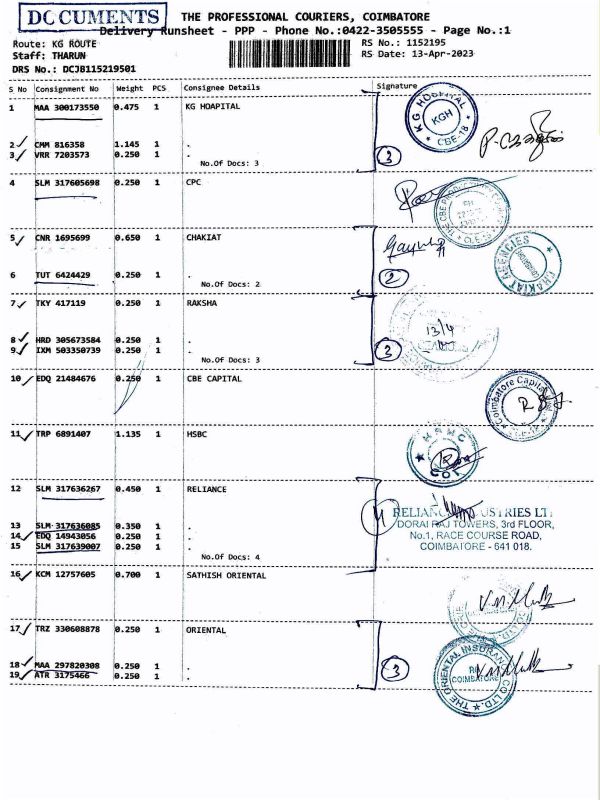 DOCUMENTS
THE PROFESSIONAL COURIERS, COIMBATORE
Delivery Runsheet - PPP - Phone No.:0422-3505555 - Page No.:1
Route: KG ROUTE
RS No.: 1152195
Staff: THARUN
RS Date: 13-Apr-2023
DRS No.: DCJB115219501
S No Consignment No Weight PCS Consignee Details Signature
1 MAA 300173550 0.475 1 KG HOAPITAL
KG HOSPITAL KGH CBE-18
2 CMM 816358 1.145 1 .
3 VRR 7203573 0.250 1 .
No.Of Docs: 3
3
4 SLM 317605698 0.250 1 CPC
5 CNR 1695699 0.650 1 CHAKIAT
CHAKIAT AGENCIES
6 TUT 6424429 0.250 1 .
No.Of Docs: 2
2
7 TKY 417119 0.250 1 RAKSHA
13/4
8 HRD 305673584 0.250 1 .
9 IXM 503350739 0.250 1 .
No.Of Docs: 3
3
10 EDQ 21484676 0.250 1 CBE CAPITAL
Coimbatore Capital
11 TRP 6891407 1.135 1 HSBC
12 SLM 317636267 0.450 1 RELIANCE
4
RELIANCE INDUSTRIES LTD
13 SLM 317636085 0.350 1 .
DORAI RAJ TOWERS, 3rd FLOOR,
14 EDQ 14943056 0.250 1 .
No.1, RACE COURSE ROAD,
15 SLM 317639007 0.250 1 .
COIMBATORE - 641 018.
No.Of Docs: 4
16 KCM 12757605 0.700 1 SATHISH ORIENTAL
17 TRZ 330608878 0.250 1 ORIENTAL
18 MAA 297820308 0.250 1 .
19 ATR 3175466 0.250 1 .
3
THE ORIENTAL INSURANCE CO LTD.
COIMBATORE